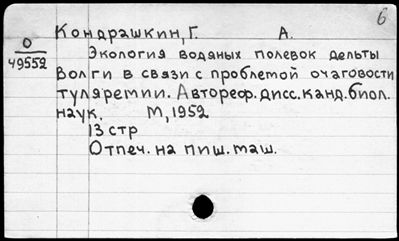 6
Кондрашкин, Г. А.
О
49552
Экология водяных полевок дельты
Волги в связи с проблемой очаговости
туляремии. Автореф. дисс. канд. биол.
наук. М, 1952
13 стр
Отпеч. на пиш. маш.